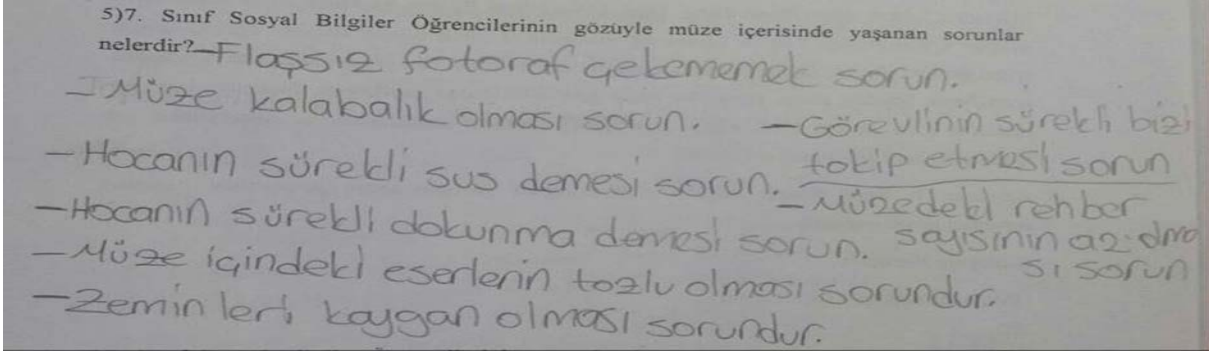 5)7. Sınıf Sosyal Bilgiler Öğrencilerinin gözüyle müze içerisinde yaşanan sorunlar
nelerdir? -Flaşsız fotoraf çekememek sorun.
- Müze kalabalık olması sorun.
- Hocanın sürekli sus demesi sorun.
- Hocanın sürekli dokunma demesi sorun.
- Müze içindeki eserlerin tozlu olması sorundur.
- Zeminleri kaygan olması sorundur.
- Görevlinin sürekli bizi
takip etmesi sorun
- Müzedeki rehber
sayısının az olma
sı sorun